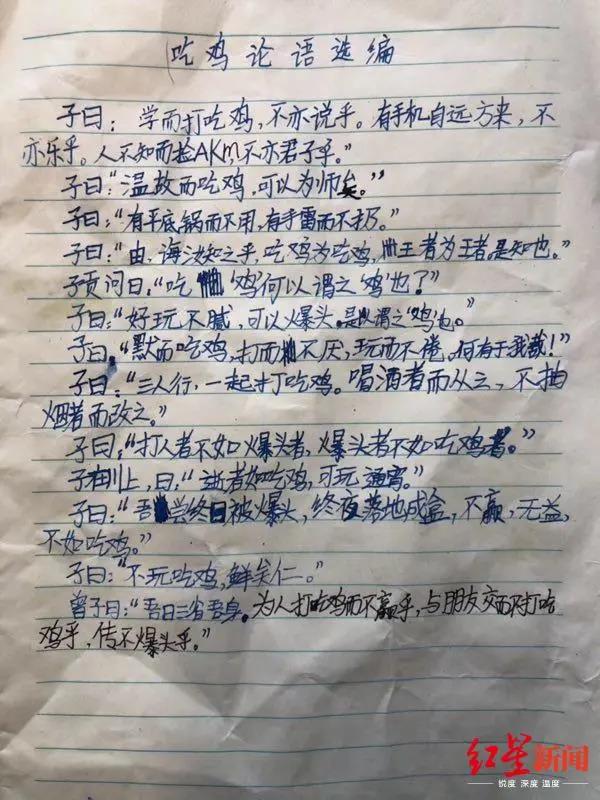 吃鸡论语选编
子曰：学而打吃鸡，不亦说乎。有手机自远方来，不
亦乐乎。人不知而捡AKm，不亦君子乎。”
子曰：“温故而吃鸡，可以为师矣。”
子曰：“有平底锅而不用，有手雷而不扔。”
子曰：“由，诲汝知之乎，吃鸡为吃鸡，王者为王者，是知也。”
子贡问曰，“吃‘鸡’何以谓之‘鸡’也？”
子曰：“好玩不腻，可以爆头。是以谓之‘鸡’也。”
子曰，“默而吃鸡，打而不厌，玩而不倦，何有于我哉！”
子曰：“三人行，一起打吃鸡。喝酒者而从之，不抽
烟者而改之。”
子曰：“打人者不如爆头者，爆头者不如吃鸡者。”
子在川上，曰：“逝者如吃鸡，可玩通宵。”
子曰：“吾尝终日被爆头，终夜落地成盒，不赢，无益，
不如吃鸡。”
子曰：“不玩吃鸡，鲜矣仁。”
曾子曰：“吾日三省吾身。为人打吃鸡而不赢乎，与朋友交而不打吃
鸡乎，传不爆头乎。”
红星新闻
锐度 深度 温度